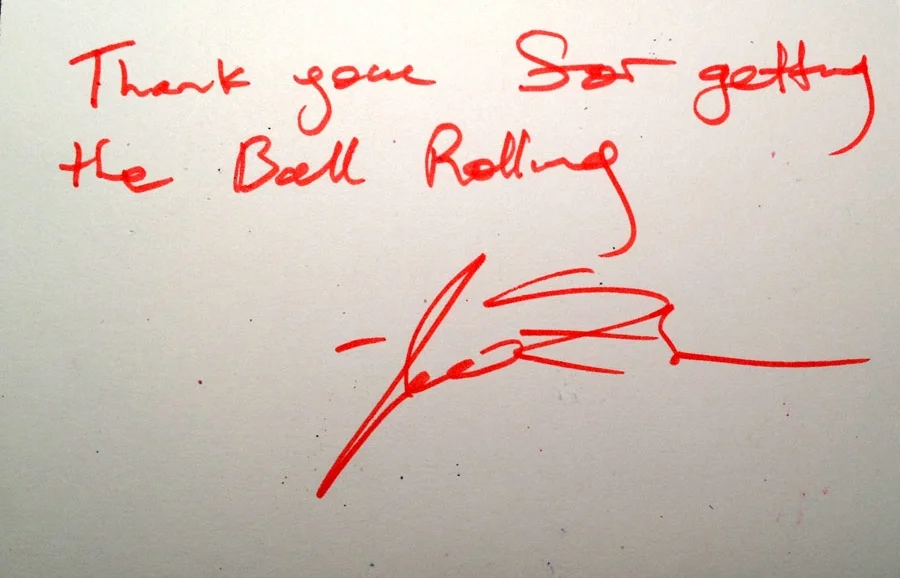 Thank you for getting
the Ball Rolling